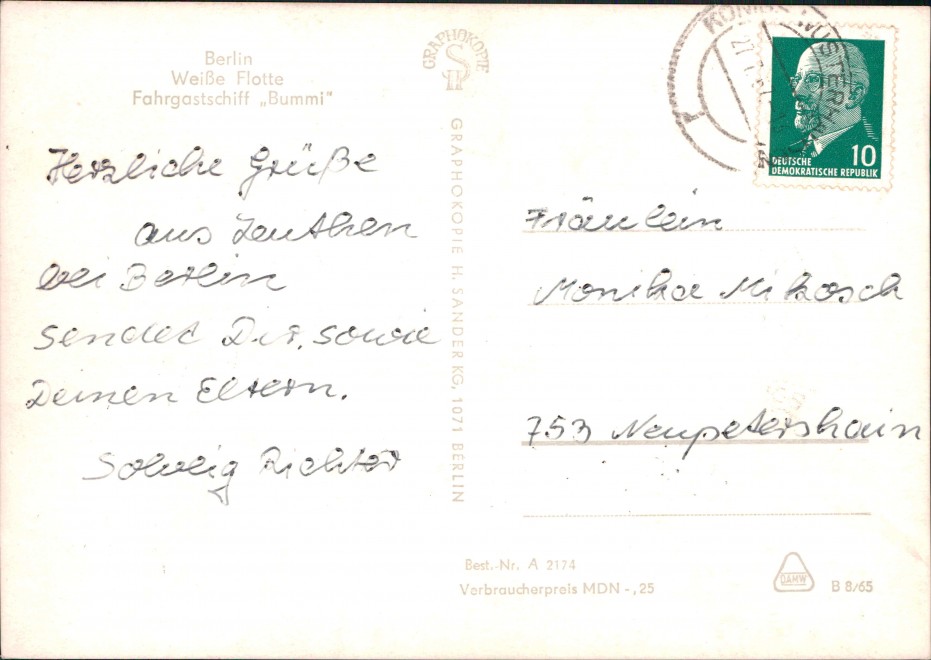 Berlin
Weiße Flotte
Fahrgastschiff „Bummi"
Herzliche Grüße
aus Zeuthen
bei Berlin
sendet Dir, sowie
Deinen Eltern.
Solveig Richter
GRAPHOKOPIE
GRAPHOKOPIE H. SANDER KG, 1071 BERLIN
DEUTSCHE
DEMOKRATISCHE REPUBLIK
10
Fräulein
Monika Mikosch
753 Neupetershain
Best.-Nr. A 2174
Verbraucherpreis MDN -,25
DAMW
B 8/65